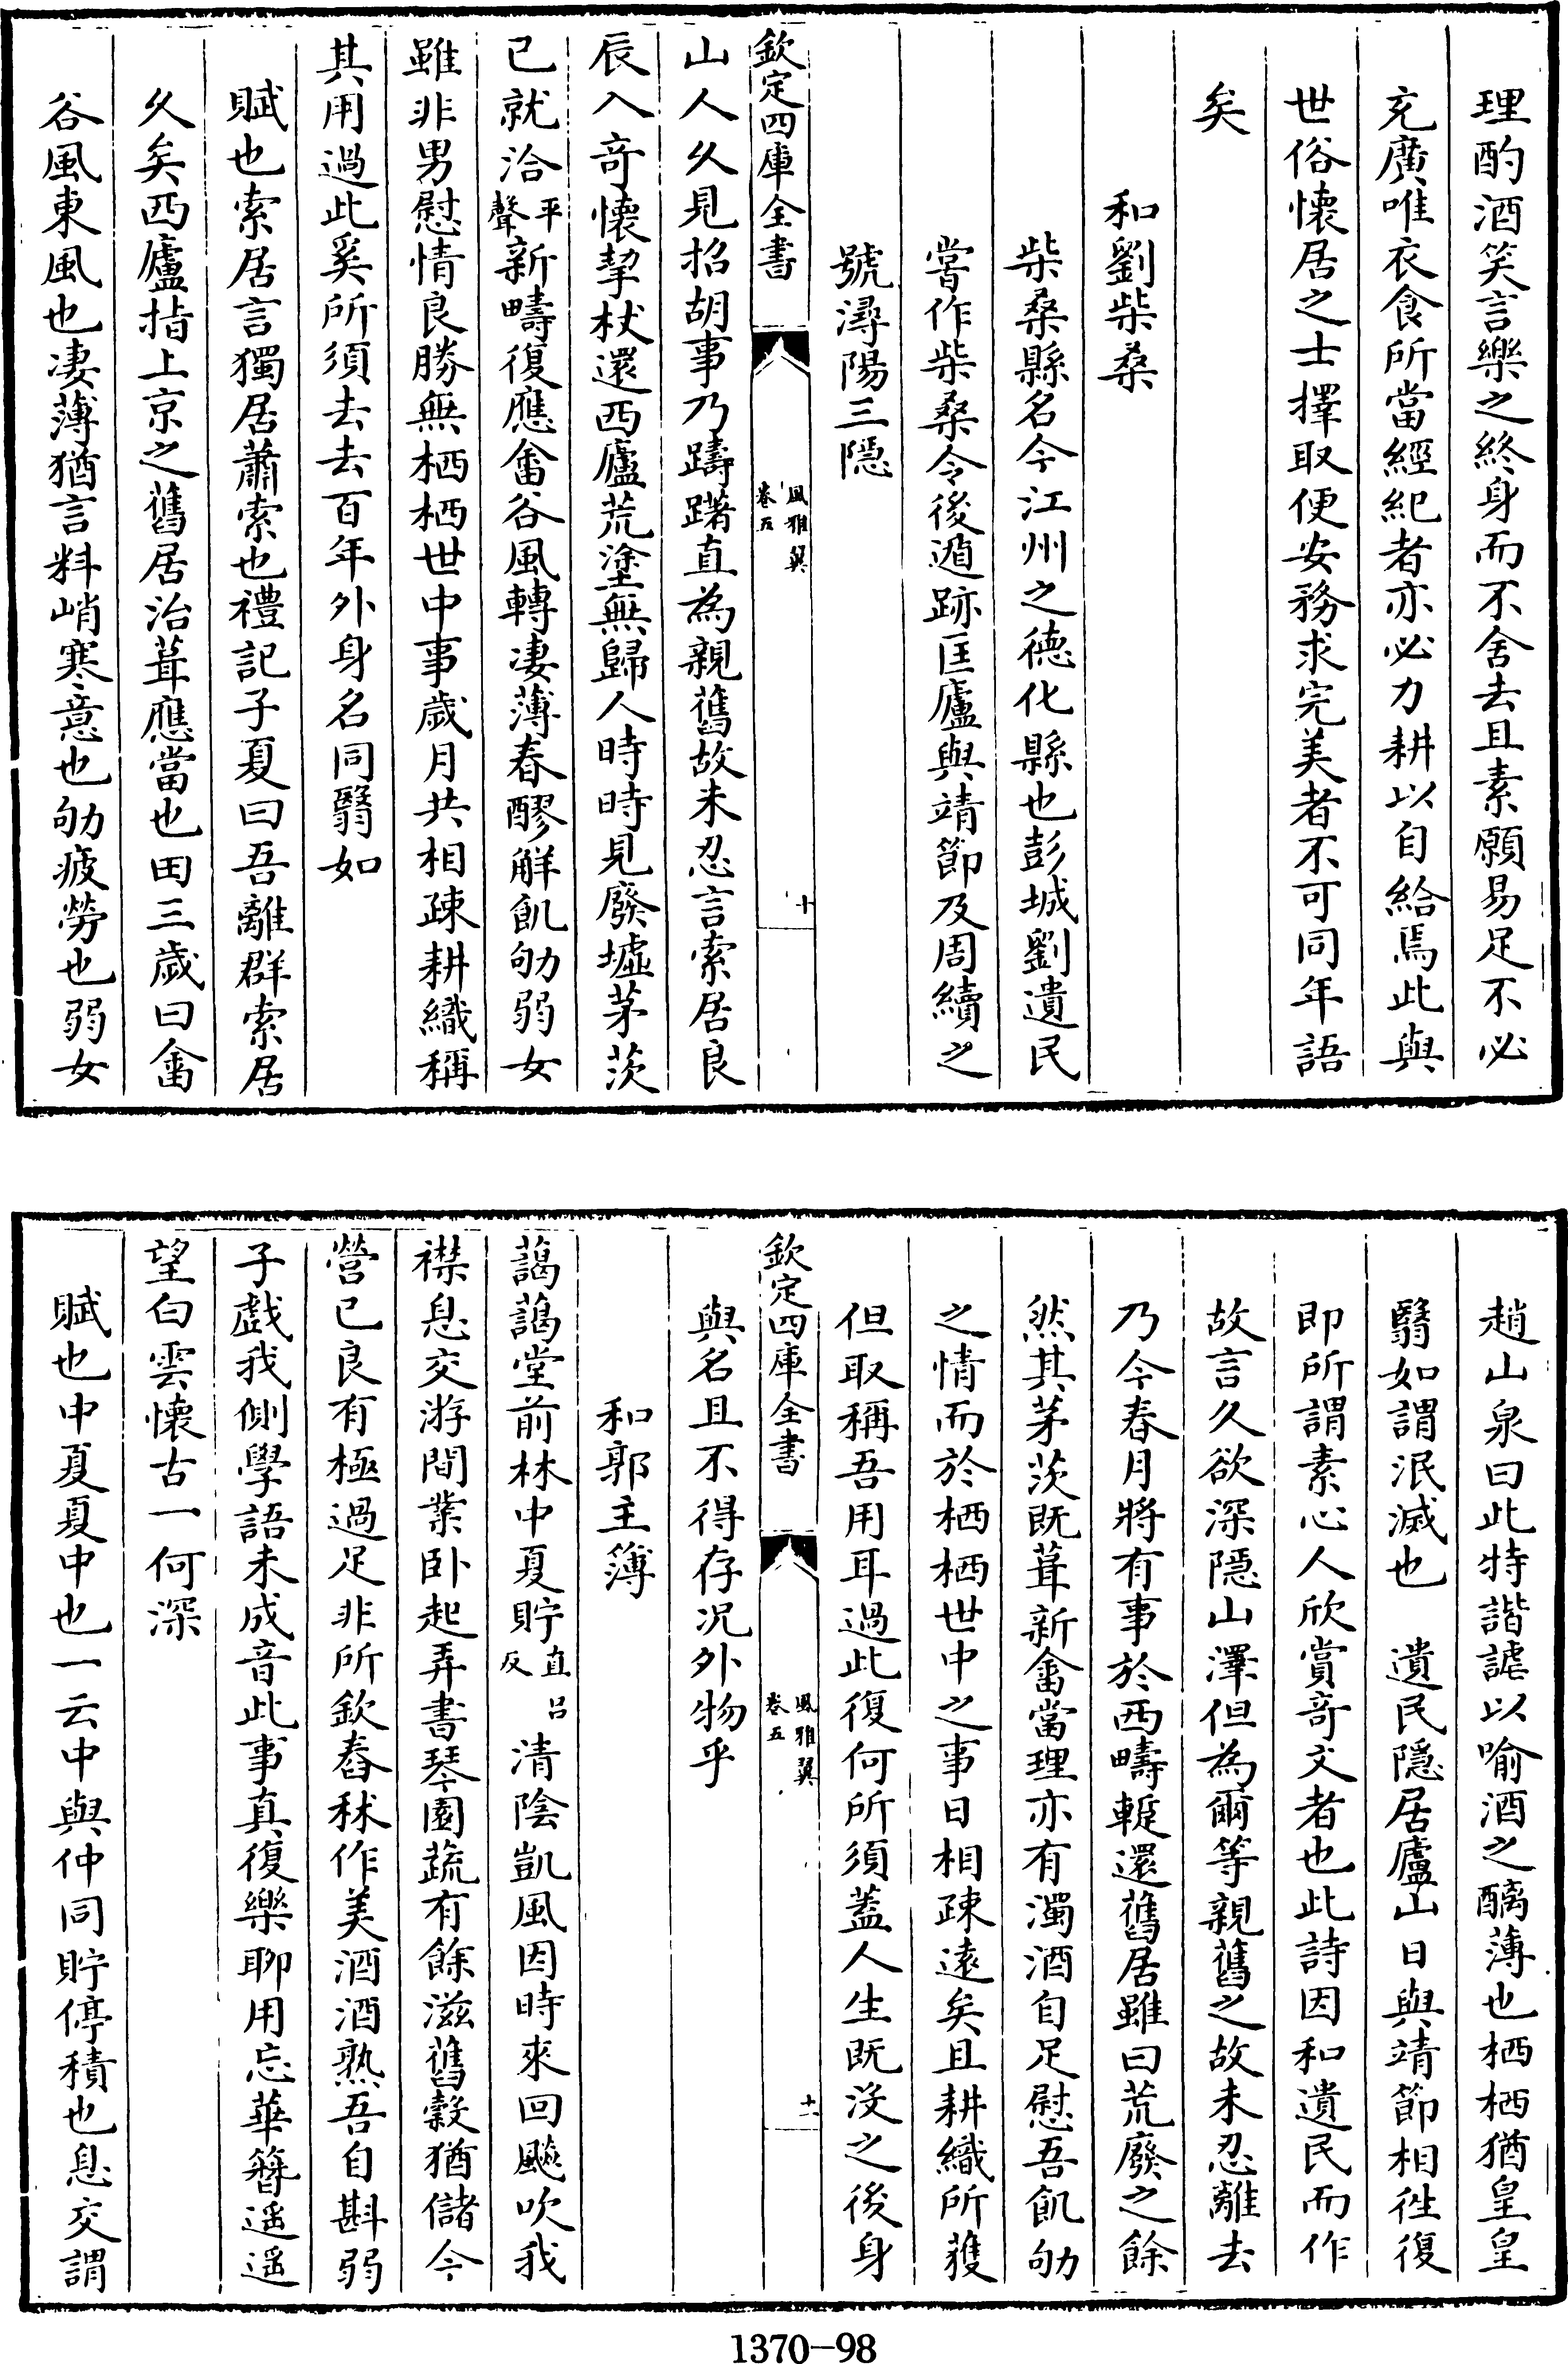 理酌酒笑言樂之終身而不舍去且素願易足不必
充廣唯衣食所當經紀者亦必力耕以自給焉此與
世俗懷居之士擇取便安務求完美者不可同年語
矣
和劉柴桑
柴桑縣名今江州之德化縣也彭城劉遺民
嘗作柴桑令後遁跡匡廬與靖節及周續之
號潯陽三隱
欽定四庫全書
風雅翼
卷五
十
山人久見招胡事乃躊躇直為親舊故未忍言索居良
辰入竒懷挈杖還西廬荒塗無歸人時時見廢墟茅茨
已就治平聲新疇復應畬谷風轉凄薄春醪解飢劬弱女
雖非男慰情良勝無栖栖世中事歲月共相疎耕織稱
其用過此奚所須去去百年外身名同翳如
賦也索居言獨居蕭索也禮記子夏曰吾離群索居
久矣西廬指上京之舊居治葺應當也田三歲曰畬
谷風東風也凄薄猶言料峭寒意也劬疲勞也弱女
趙山泉曰此特諧謔以喻酒之醨薄也栖栖猶皇皇
翳如謂泯滅也　遺民隱居廬山日與靖節相徃復
即所謂素心人欣賞竒文者也此詩因和遺民而作
故言久欲深隱山澤但為爾等親舊之故未忍離去
乃今春月將有事於西疇輒還舊居雖曰荒廢之餘
然其茅茨既葺新畬當理亦有濁酒自足慰吾飢劬
之情而於栖栖世中之事日相疎逺矣且耕織所獲
但取稱吾用耳過此復何所須蓋人生既沒之後身
欽定四庫全書
風雅翼
卷五
十一
與名且不得存况外物乎
和郭主簿
藹藹堂前林中夏貯直呂反清陰凱風因時來回飈吹我
襟息交游閒業卧起弄書琴園蔬有餘滋舊穀猶儲今
營已良有極過足非所欽舂秫作美酒酒熟吾自斟弱
子戲我側學語未成音此事真復樂聊用忘華簪遥遥
望白雲懷古一何深
賦也中夏夏中也一云中與仲同貯停積也息交謂
1370-98